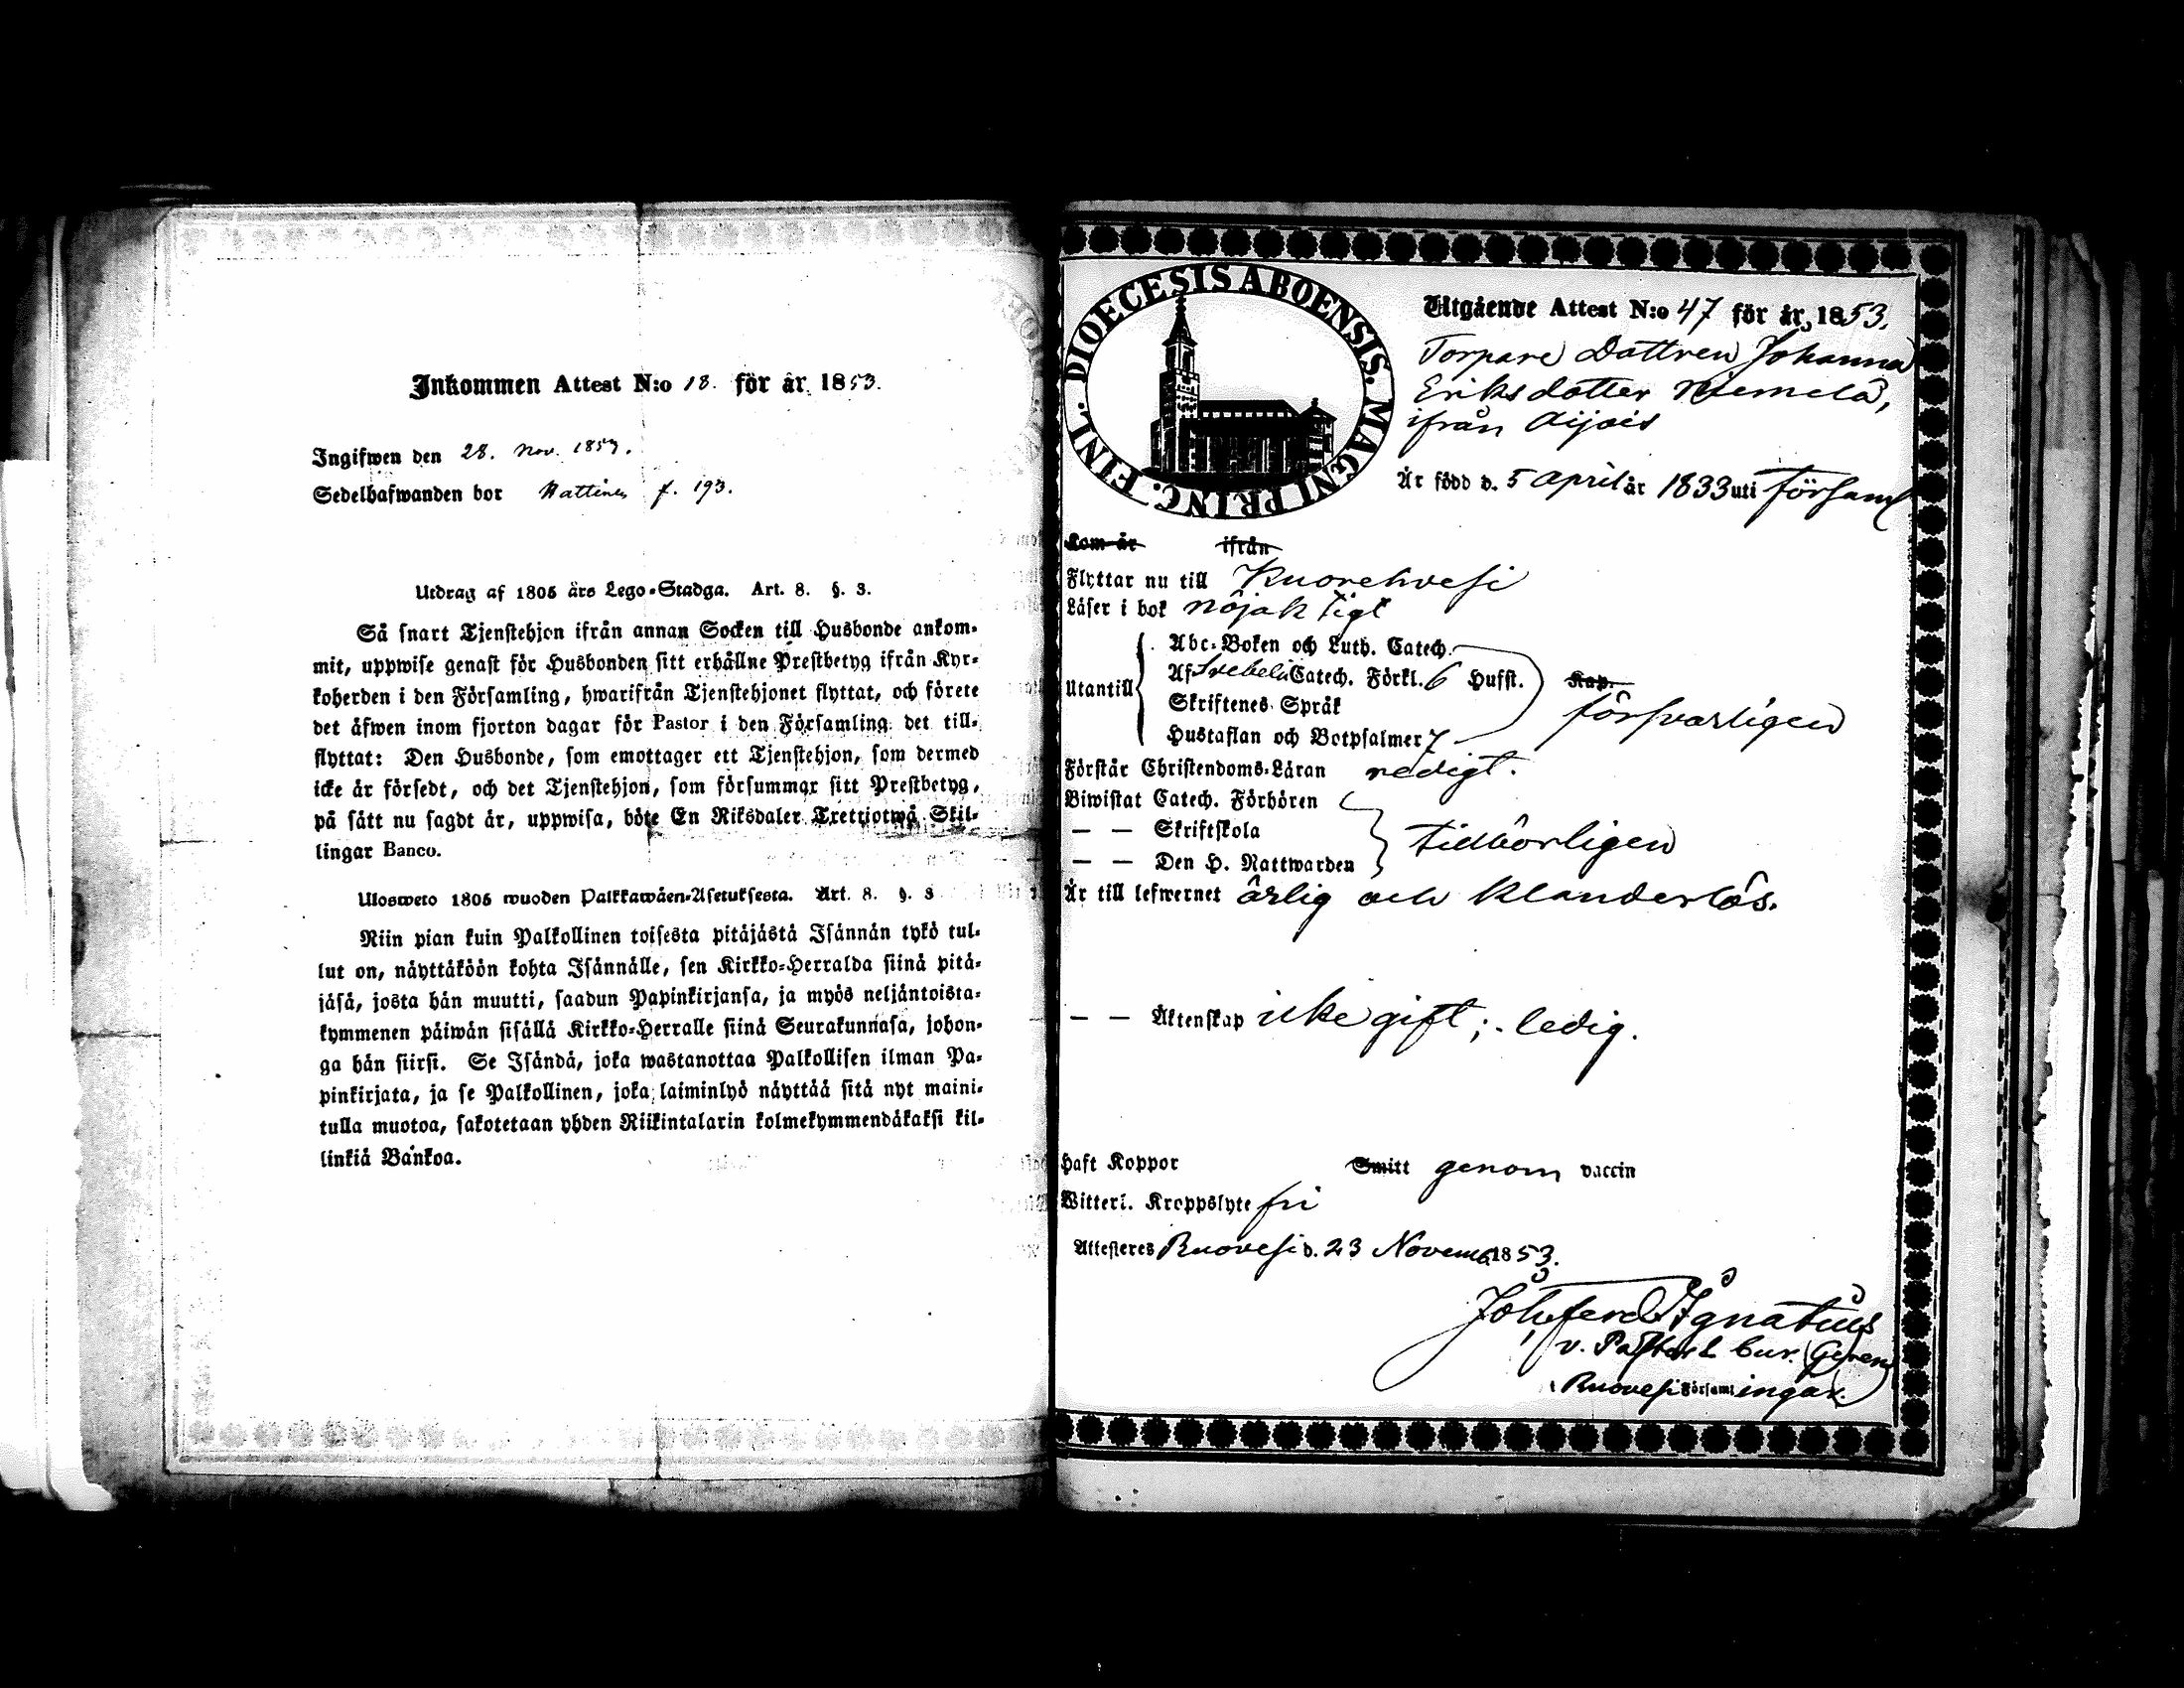 Inkommen Attest N:o 18. för år 1853.
Ingifwen den 28. Nov. 1853.
Sedelhafwanden bor Hattines f. 193.
Utdrag af 1805 års Lego-Stadga. Art. 8. §. 3.
Så snart Tjenstehjon ifrån annan Socken till Husbonde ankom-
mit, uppwise genast för Husbonden sitt erhållne Prestbetyg ifrån Kyr-
koherden i den Församling, hwarifrån Tjenstehjonet flyttat, och förete
det äfwen inom fjorton dagar för Pastor i den Församling det till-
flyttat: Den Husbonde, som emottager ett Tjenstehjon, som dermed
icke är försedt, och det Tjenstehjon, som försummar sitt Prestbetyg,
på sätt nu sagdt är, uppwisa, böte En Riksdaler Trettiotwå Skil-
lingar Banco.
Ulosweto 1805 wuoden Palkkawäen-Asetuksesta. Art. 8. §. 3
Niin pian kuin Palkollinen toisesta pitäjästä Isännän tykö tul-
lut on, näyttäköön kohta Isännälle, sen Kirkko-Herralda siinä pitä-
jäsä, josta hän muutti, saadun Papinkirjansa, ja myös neljäntoista-
kymmenen päiwän sisällä Kirkko-Herralle siinä Seurakunnasa, johon-
ga hän siirsi. Se Isändä, joka wastanottaa Palkollisen ilman Pa-
pinkirjata, ja se Palkollinen, joka laiminlyö näyttää sitä nyt maini-
tulla muotoa, sakotetaan yhden Riikintalarin kolmekymmendäkaksi kil-
linkiä Bankoa.
DIOECESIS ABOENSIS. MAGNI PRINC. FINL.
Utgående Attest N:o 47 för år 1853.
Torpare Dottren Johanna
Eriksdotter Niemelä,
ifrån Aijois
Är född d. 5 April år 1833 uti Församl
Kom år ifrån
Flyttar nu till Kuorehvesi
Läser i bok nöjaktigt
Abc-Boken och Luth. Catech.
Af Svebelii Catech. Förkl. 6 Hufst. Kap.
Utantill
Skriftenes Språk försvarligen
Hustaflan och Botpsalmer 7
Förstår Christendoms-Läran redigt.
Biwistat Catech. Förhören
— — Skriftskola tidbörligen
— — Den H. Nattwarden
Är till lefwernet ärlig och klanderlös.
— — Äktenskap icke gift; ledig.
Haft Koppor Smitt genom vaccin
Witterl. Kroppslyte fri
Attesteres Ruovesi d. 23 Novemb 1853.
Joh: Ferd: Ignatius
v. Pastor &
Ruovesi Församlingar.